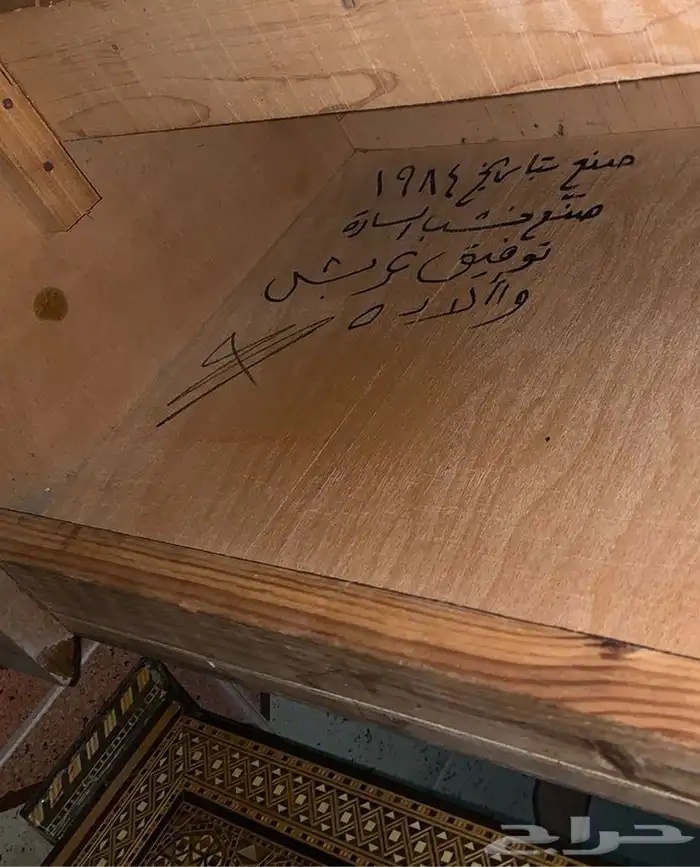 صنع بتاريخ ١٩٨٤
صنع خشب السادة
توفيق عربش
وأألاده
حراج